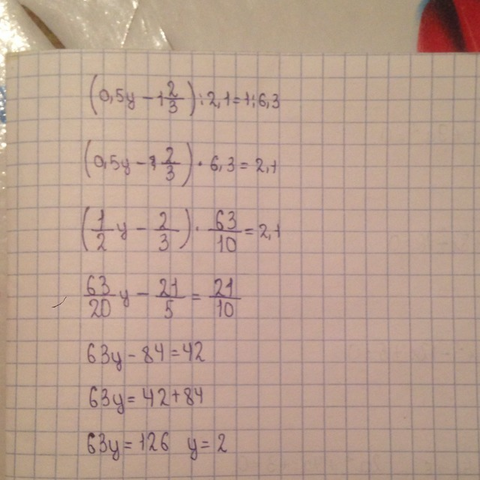 (0,5y − 1 2/3) : 2,1 = 1 : 6,3
(0,5y − 2/3) · 6,3 = 2,1
(1/2 y − 2/3) · 63/10 = 2,1
63/20 y − 21/5 = 21/10
63y − 84 = 42
63y = 42 + 84
63y = 126 y = 2